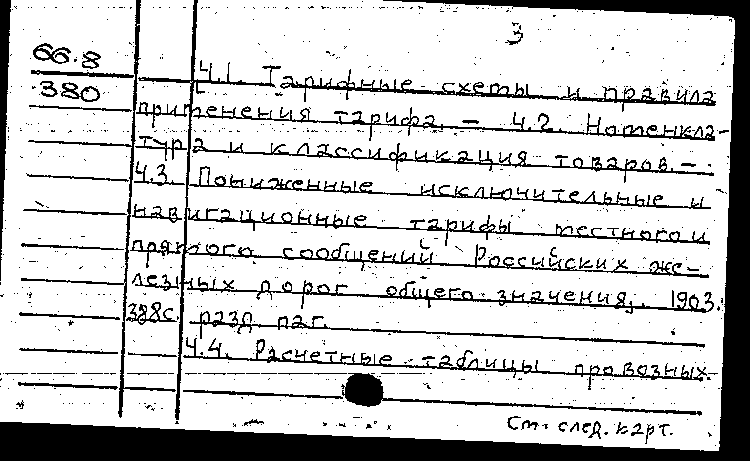 3
66.8
380
Ч.1. Тарифные схемы и правила
применения тарифа. — Ч.2. Номенкла-
тура и классификация товаров. —
Ч.3. Пониженные исключительные и
навигационные тарифы местного и
прямого сообщений Российских же-
лезных дорог общего значения, 1903.
388с. разд. паг.
Ч.4. Расчетные таблицы провозных
См. след. карт.